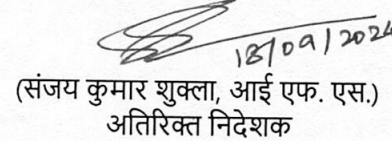 18/09/2024
(संजय कुमार शुक्ला, आई एफ. एस.)
अतिरिक्त निदेशक